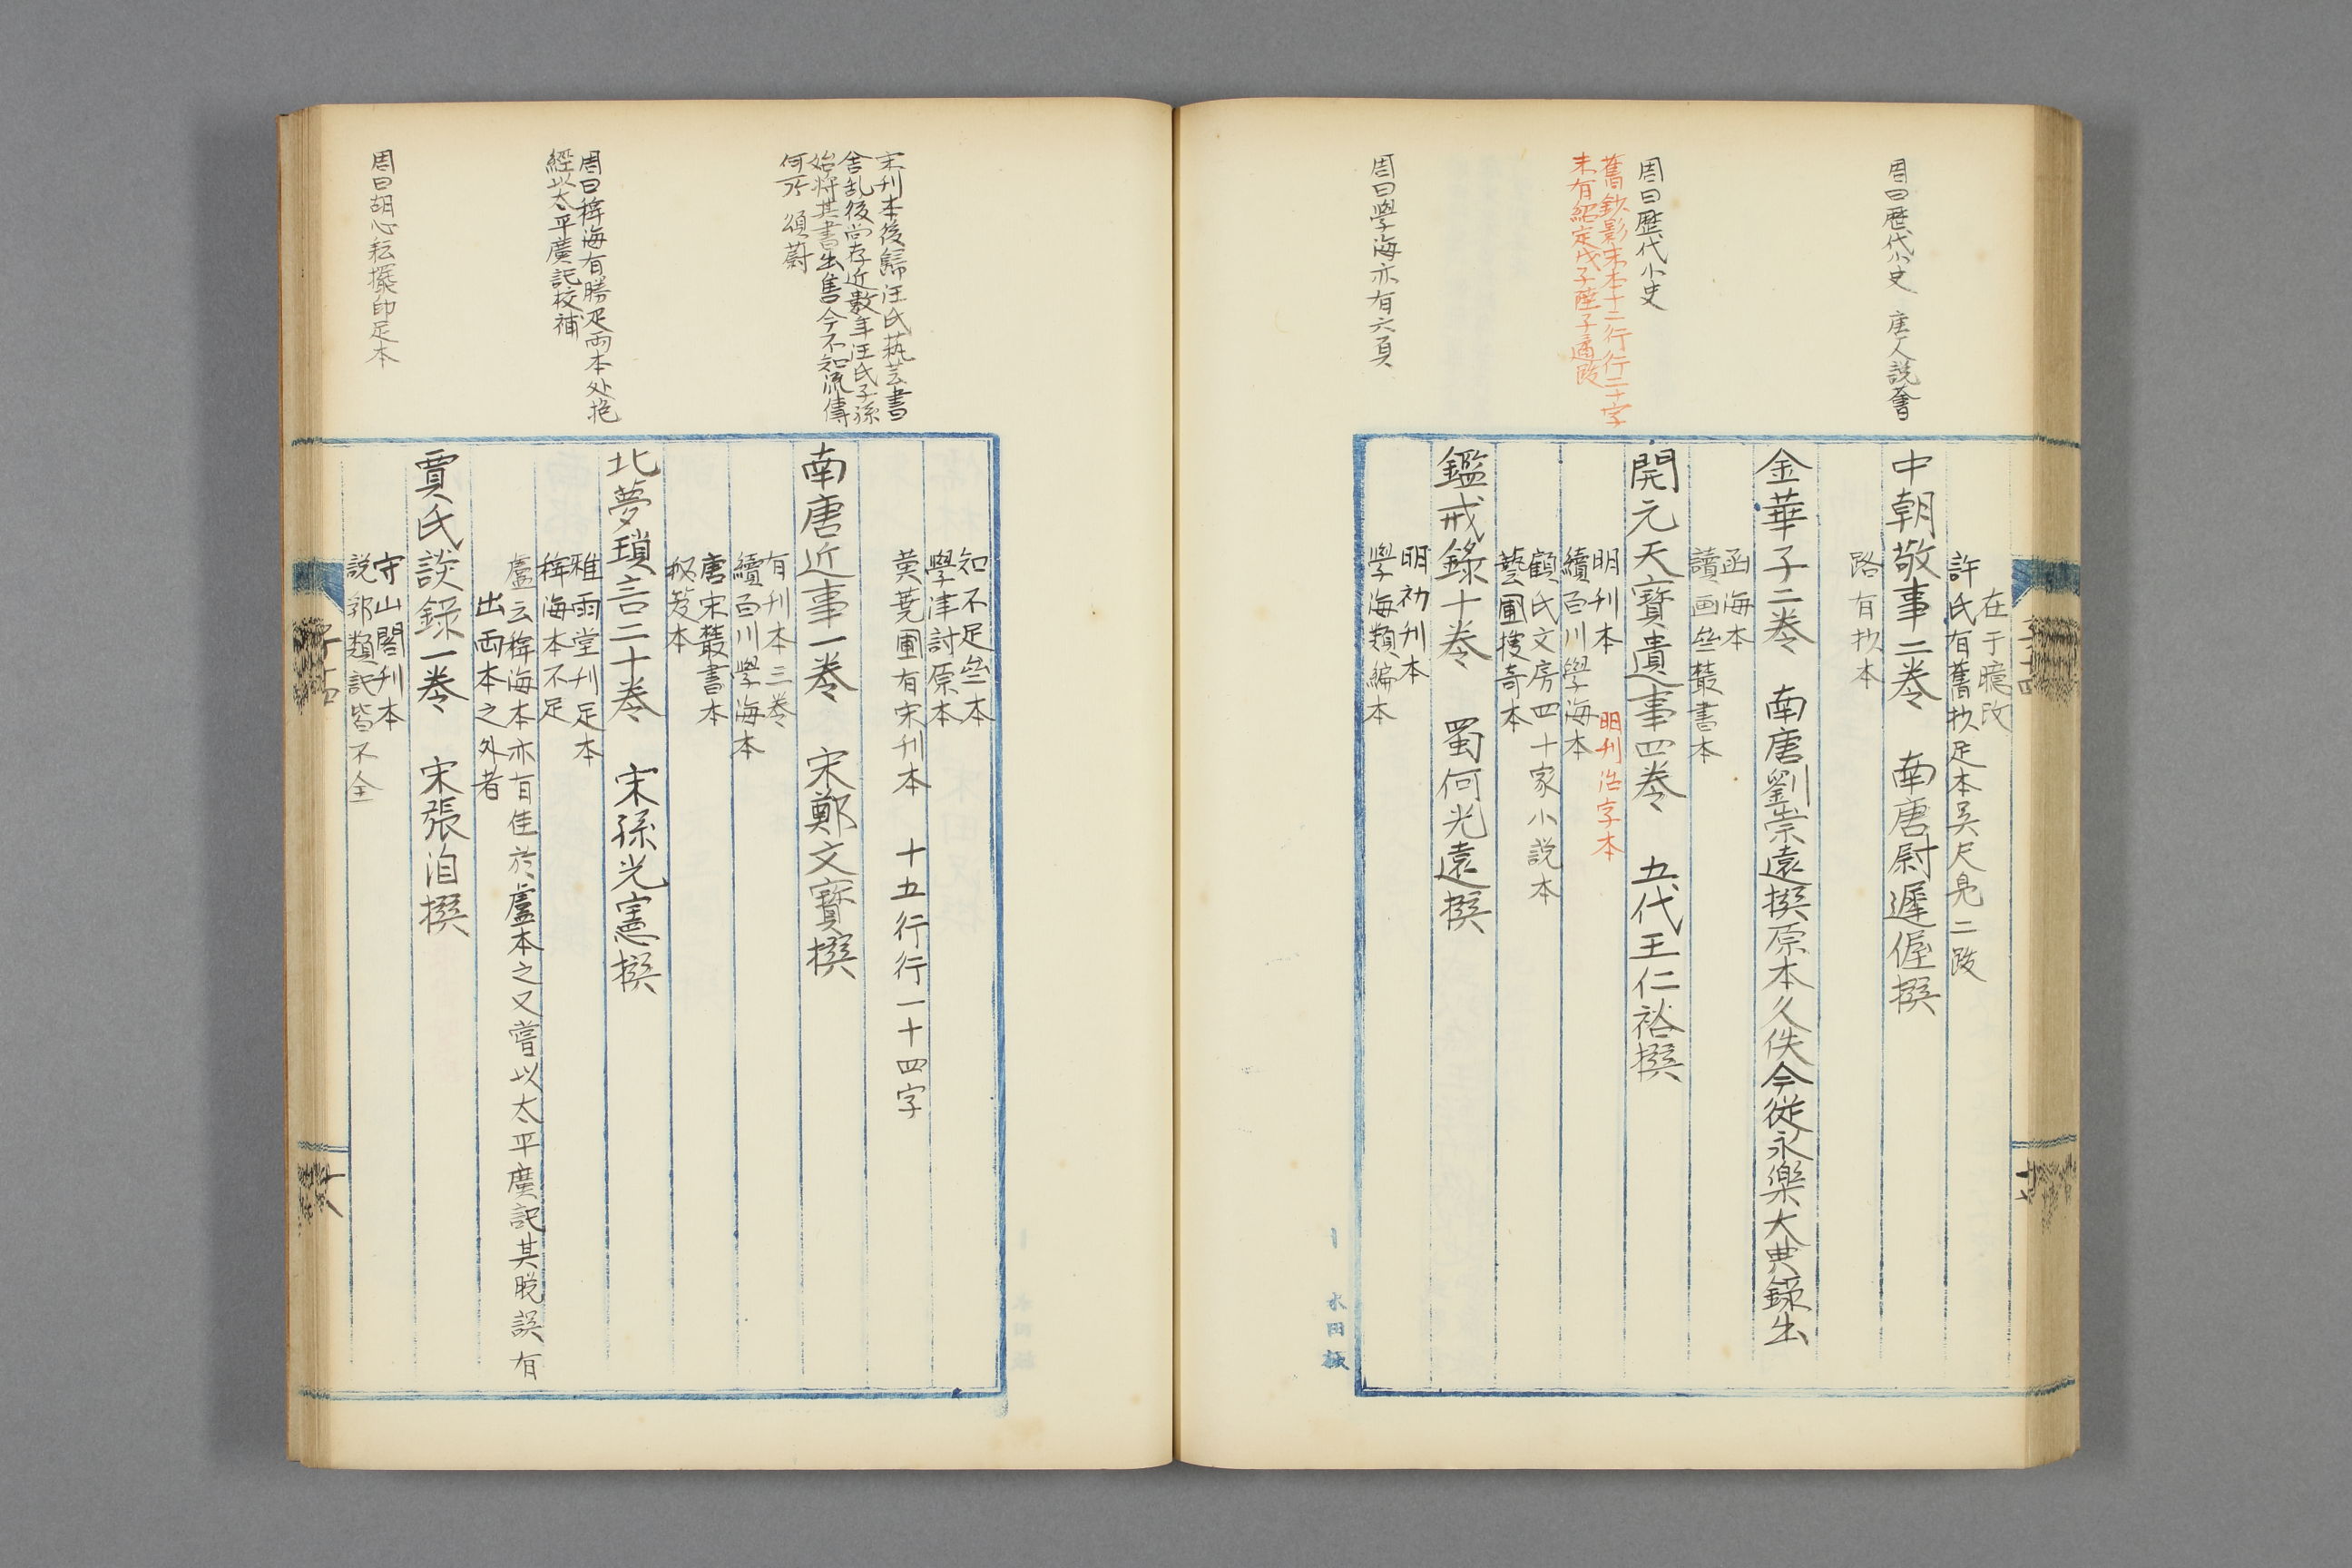 周曰歷代小史 唐人說薈
周曰歷代小史
舊鈔影宋本十二行行二十字
末有紹定戊子陸子遹跋
周曰學海亦有六頁
在于臆改
許氏有舊抄足本吳尺鳧二跋
中朝敬事二卷 南唐尉遲偓撰
路有抄本
金華子二卷 南唐劉崇遠撰原本久佚今從永樂大典錄出
函海本
讀画齋叢書本
開元天寶遺事四卷 五代王仁裕撰
明刊本 明刊活字本
續百川學海本
顧氏文房四十家小說本
藝圃搜奇本
鑑戒錄十卷 蜀何光遠撰
明初刊本
學海類編本
子十四
十七
水田
宋刊本後歸汪氏藝芸書
舍乱後尚存近數年汪氏子孫
始將其書出售今不知流傳
何所 頌蔚
周曰稗海有勝足兩本处抱
經以太平廣記校補
周曰胡心耘擺印足本
知不足齋本
學津討原本
黄蕘圃有宋刊本 十五行行一十四字
南唐近事一卷 宋鄭文寶撰
有刊本三卷
續百川學海本
唐宋叢書本
秘笈本
北夢瑣言二十卷 宋孫光憲撰
雅雨堂刊足本
稗海本不足
盧云稗海本亦有佳於盧本之又嘗以太平廣記其脱誤有
出兩本之外者
賈氏談錄一卷 宋張洎撰
守山閣刊本
說郛類記皆不全
子十四
十八